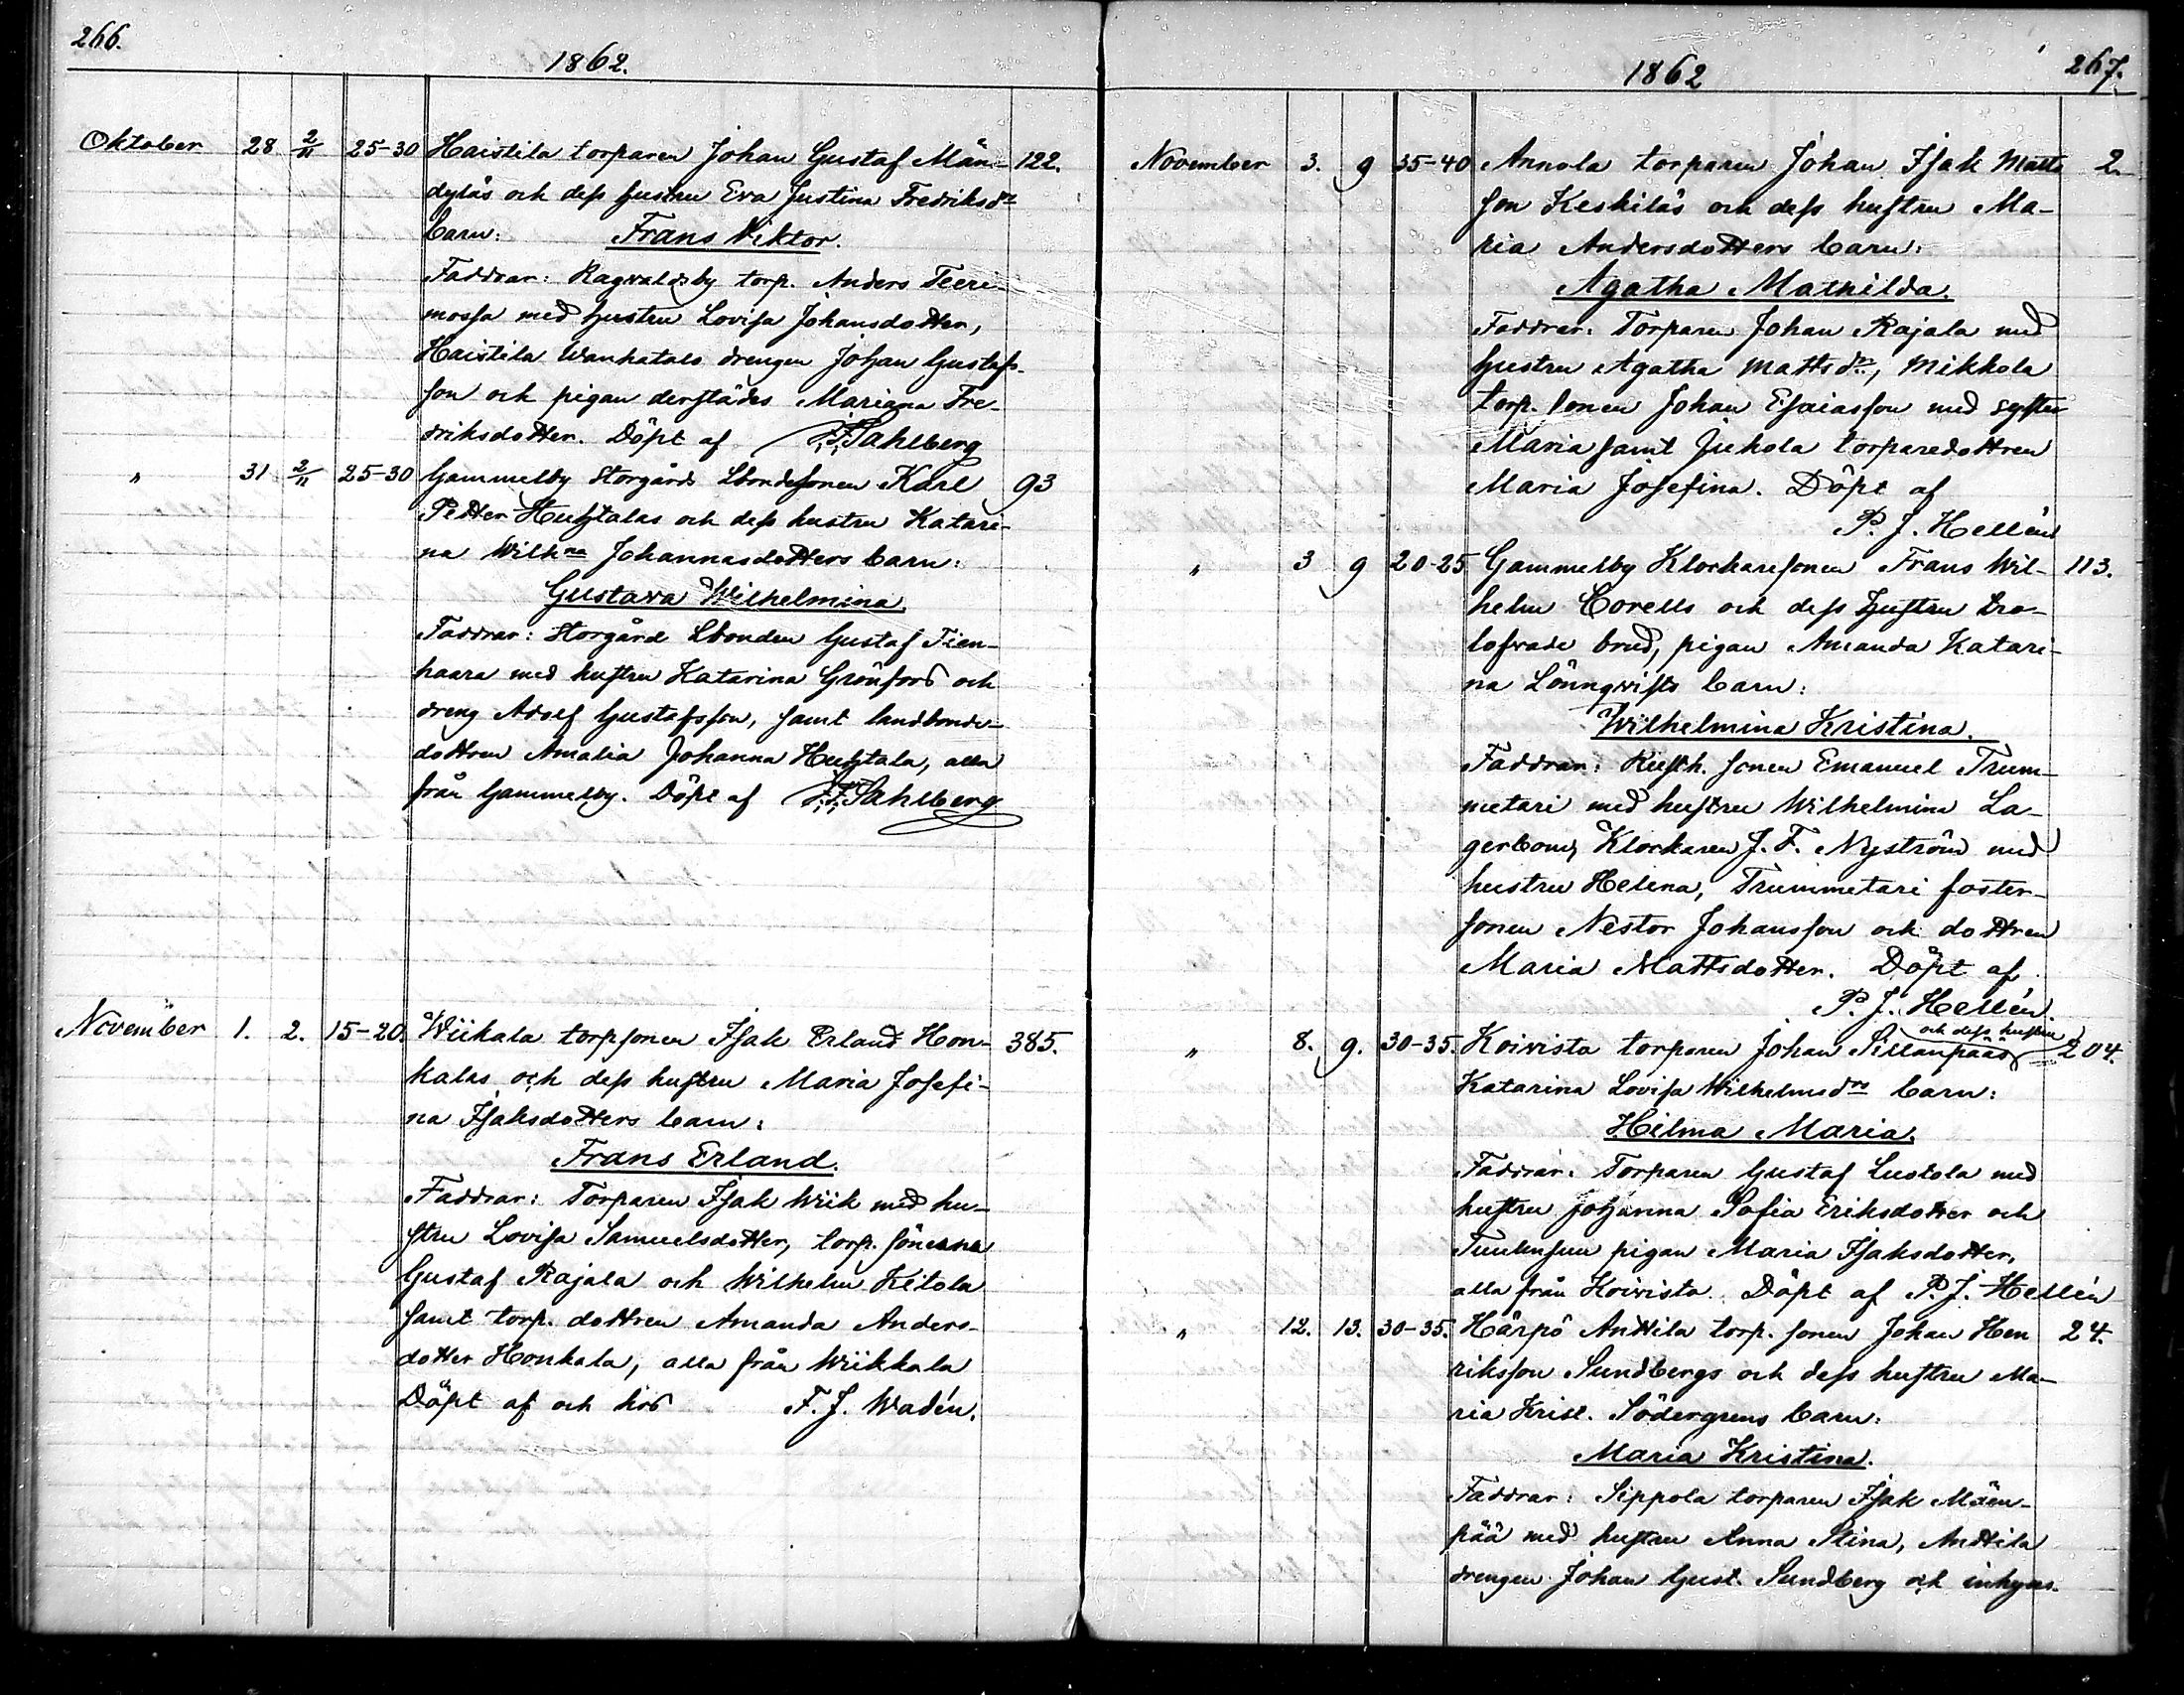 266.
1862.
Oktober 28 2/11 25-30 Haistila torparen Johan Gustaf Män- 122.
dylås och dess hustru Eva Justina Fredriksdr
barn: Frans Viktor.
Faddrar: Ragvaldsby torp. Anders Teeri-
mossa med hustru Lovisa Johansdotter,
Haistila Wanhatalo drengen Johan Gustafs-
son och pigan derstädes Mariana Fre-
driksdotter. Döpt af F. F. Sahlberg
" 31 2/11 25-30 Gammelby Storgård Lbondesonen Karl 93
Petter Huhtalas och dess hustru Katari-
na Wilhna Johannasdotters barn:
Gustava Wilhelmina.
Faddrar: Storgård Lbonden Gustaf Tien-
haara med hustru Katarina Grönfors och
dreng Adolf Gustafsson, samt landbonde-
dottren Amalia Johanna Huhtala, alla
från Gammelby. Döpt af F. F. Sahlberg
November 1. 2. 15-20. Wiikala torpsonen Isak Erland Hon- 385.
kalas och dess hustru Maria Josefi-
na Isaksdotters barn:
Frans Erland.
Faddrar: Torparen Isak Wiik med hu-
stru Lovisa Samuelsdotter, torp. sönerna
Gustaf Rajala och Wilhelm Ketola
samt torp. dottren Amanda Anders-
dotter Honkala, alla från Wiikkala
Döpt af och hos F. J. Wadén.
1862
267.
November 3. 9 35-40 Annola torparen Johan Isak Matts 2.
son Keskiläs och dess hustru Ma-
ria Andersdotters barn:
Agatha Mathilda.
Faddrar: Torparen Johan Rajala med
hustru Agatha Mattsdr, Mikkola
torp. sonen Johan Esaiasson med syster
Maria samt Jukola torparedottren
Maria Josefina. Döpt af
P. J. Hellén
" 3 9 20-25 Gammelby Klockaresonen Frans Wil- 113.
helm Corells och dess hustru tro-
lofvade brud, pigan Amanda Katari-
na Lönnqvists barn:
Wilhelmina Kristina.
Faddrar: Rusth. sonen Emanuel Trum-
metari med hustru Wilhelmina La-
gerbom, Klockaren J. F. Nyström med
hustru Helena, Trummetari foster-
sonen Nestor Johansson och dottren
Maria Mattsdotter. Döpt af
P. J. Hellén.
och dess hustru
" 8. 9. 30-35. Koivisto torparen Johan Sillanpääs 204.
Katarina Lovisa Wilhelmsdrs barn:
Hilma Maria.
Faddrar: Torparen Gustaf Luotola med
hustru Johanna Sofia Eriksdotter och
pigan Maria Isaksdotter,
alla från Koivisto. Döpt af P. J. Hellén
" 12. 13. 30-35. Härpö Anttila torp. sonen Johan Hen 24.
riksson Sundbergs och dess hustru Ma-
ria Krist. Södergrens barn:
Maria Kristina.
Faddrar: Sippola torparen Isak Mäen-
pää med hustru Anna Stina, Anttila
drengen Johan Gust. Sundberg och inhyses-